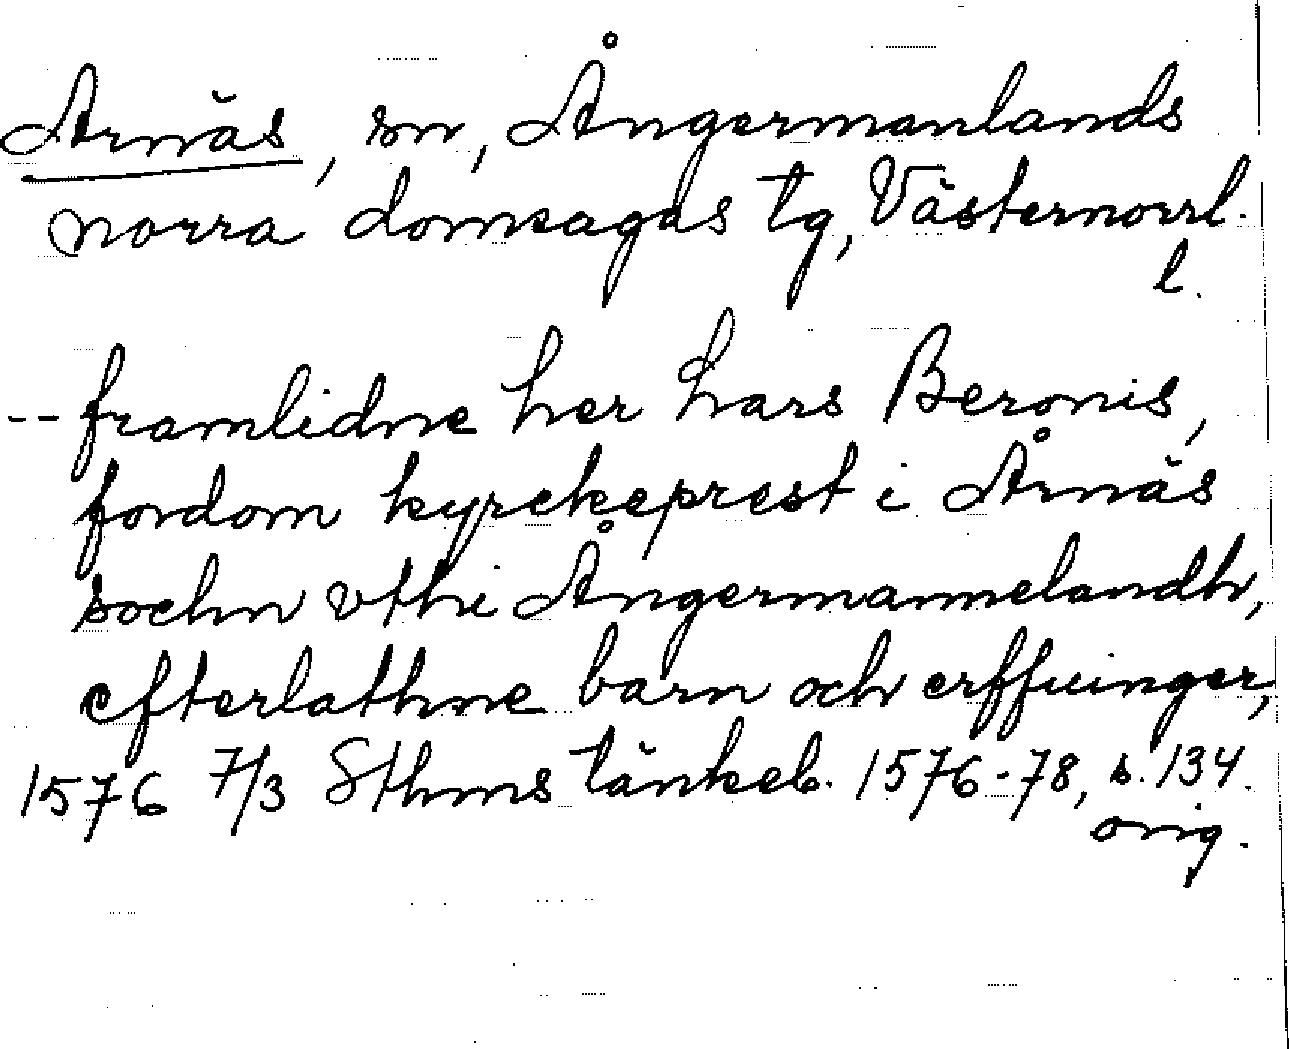 Arnäs, sn, Ångermanlands
norra domsagas tg, Västernorrl.
l.
-- framlidne her hars Beronis,
fordom kyrckeprest i Årnäs
sochn vthi Ångermannelandh,
efterlathne barn och erffuinger,
1576 7/3 Sthms tänkeb. 1576-78, s. 134.
orig.